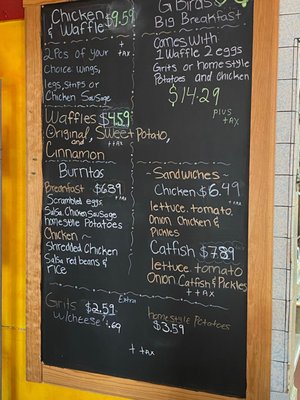 Chicken $9.59
& Waffle
+ tax
2 Pcs of your
Choice wings,
legs, strips or
Chicken Sausage
Waffles $4.59
Original, Sweet Potato,
and
Cinnamon
+ tax
Burritos
Breakfast $6.89
+ tax
Scrambled eggs
Salsa, Chicken Sausage
homestyle Potatoes
Chicken ~
Shredded Chicken
Salsa red beans &
rice
G Birds
Big Breakfast
Comes with
1 Waffle 2 eggs
Grits or homestyle
Potatoes and Chicken
$14.29
plus
+ax
~ Sandwiches ~
Chicken $6.49
+ tax
lettuce. tomato.
Onion Chicken &
Pickles
Catfish $7.89
lettuce tomato
Onion Catfish & Pickles
+ tax
Extra
Grits $2.59
w/cheese .69
homestyle Potatoes
$3.59
+ tax